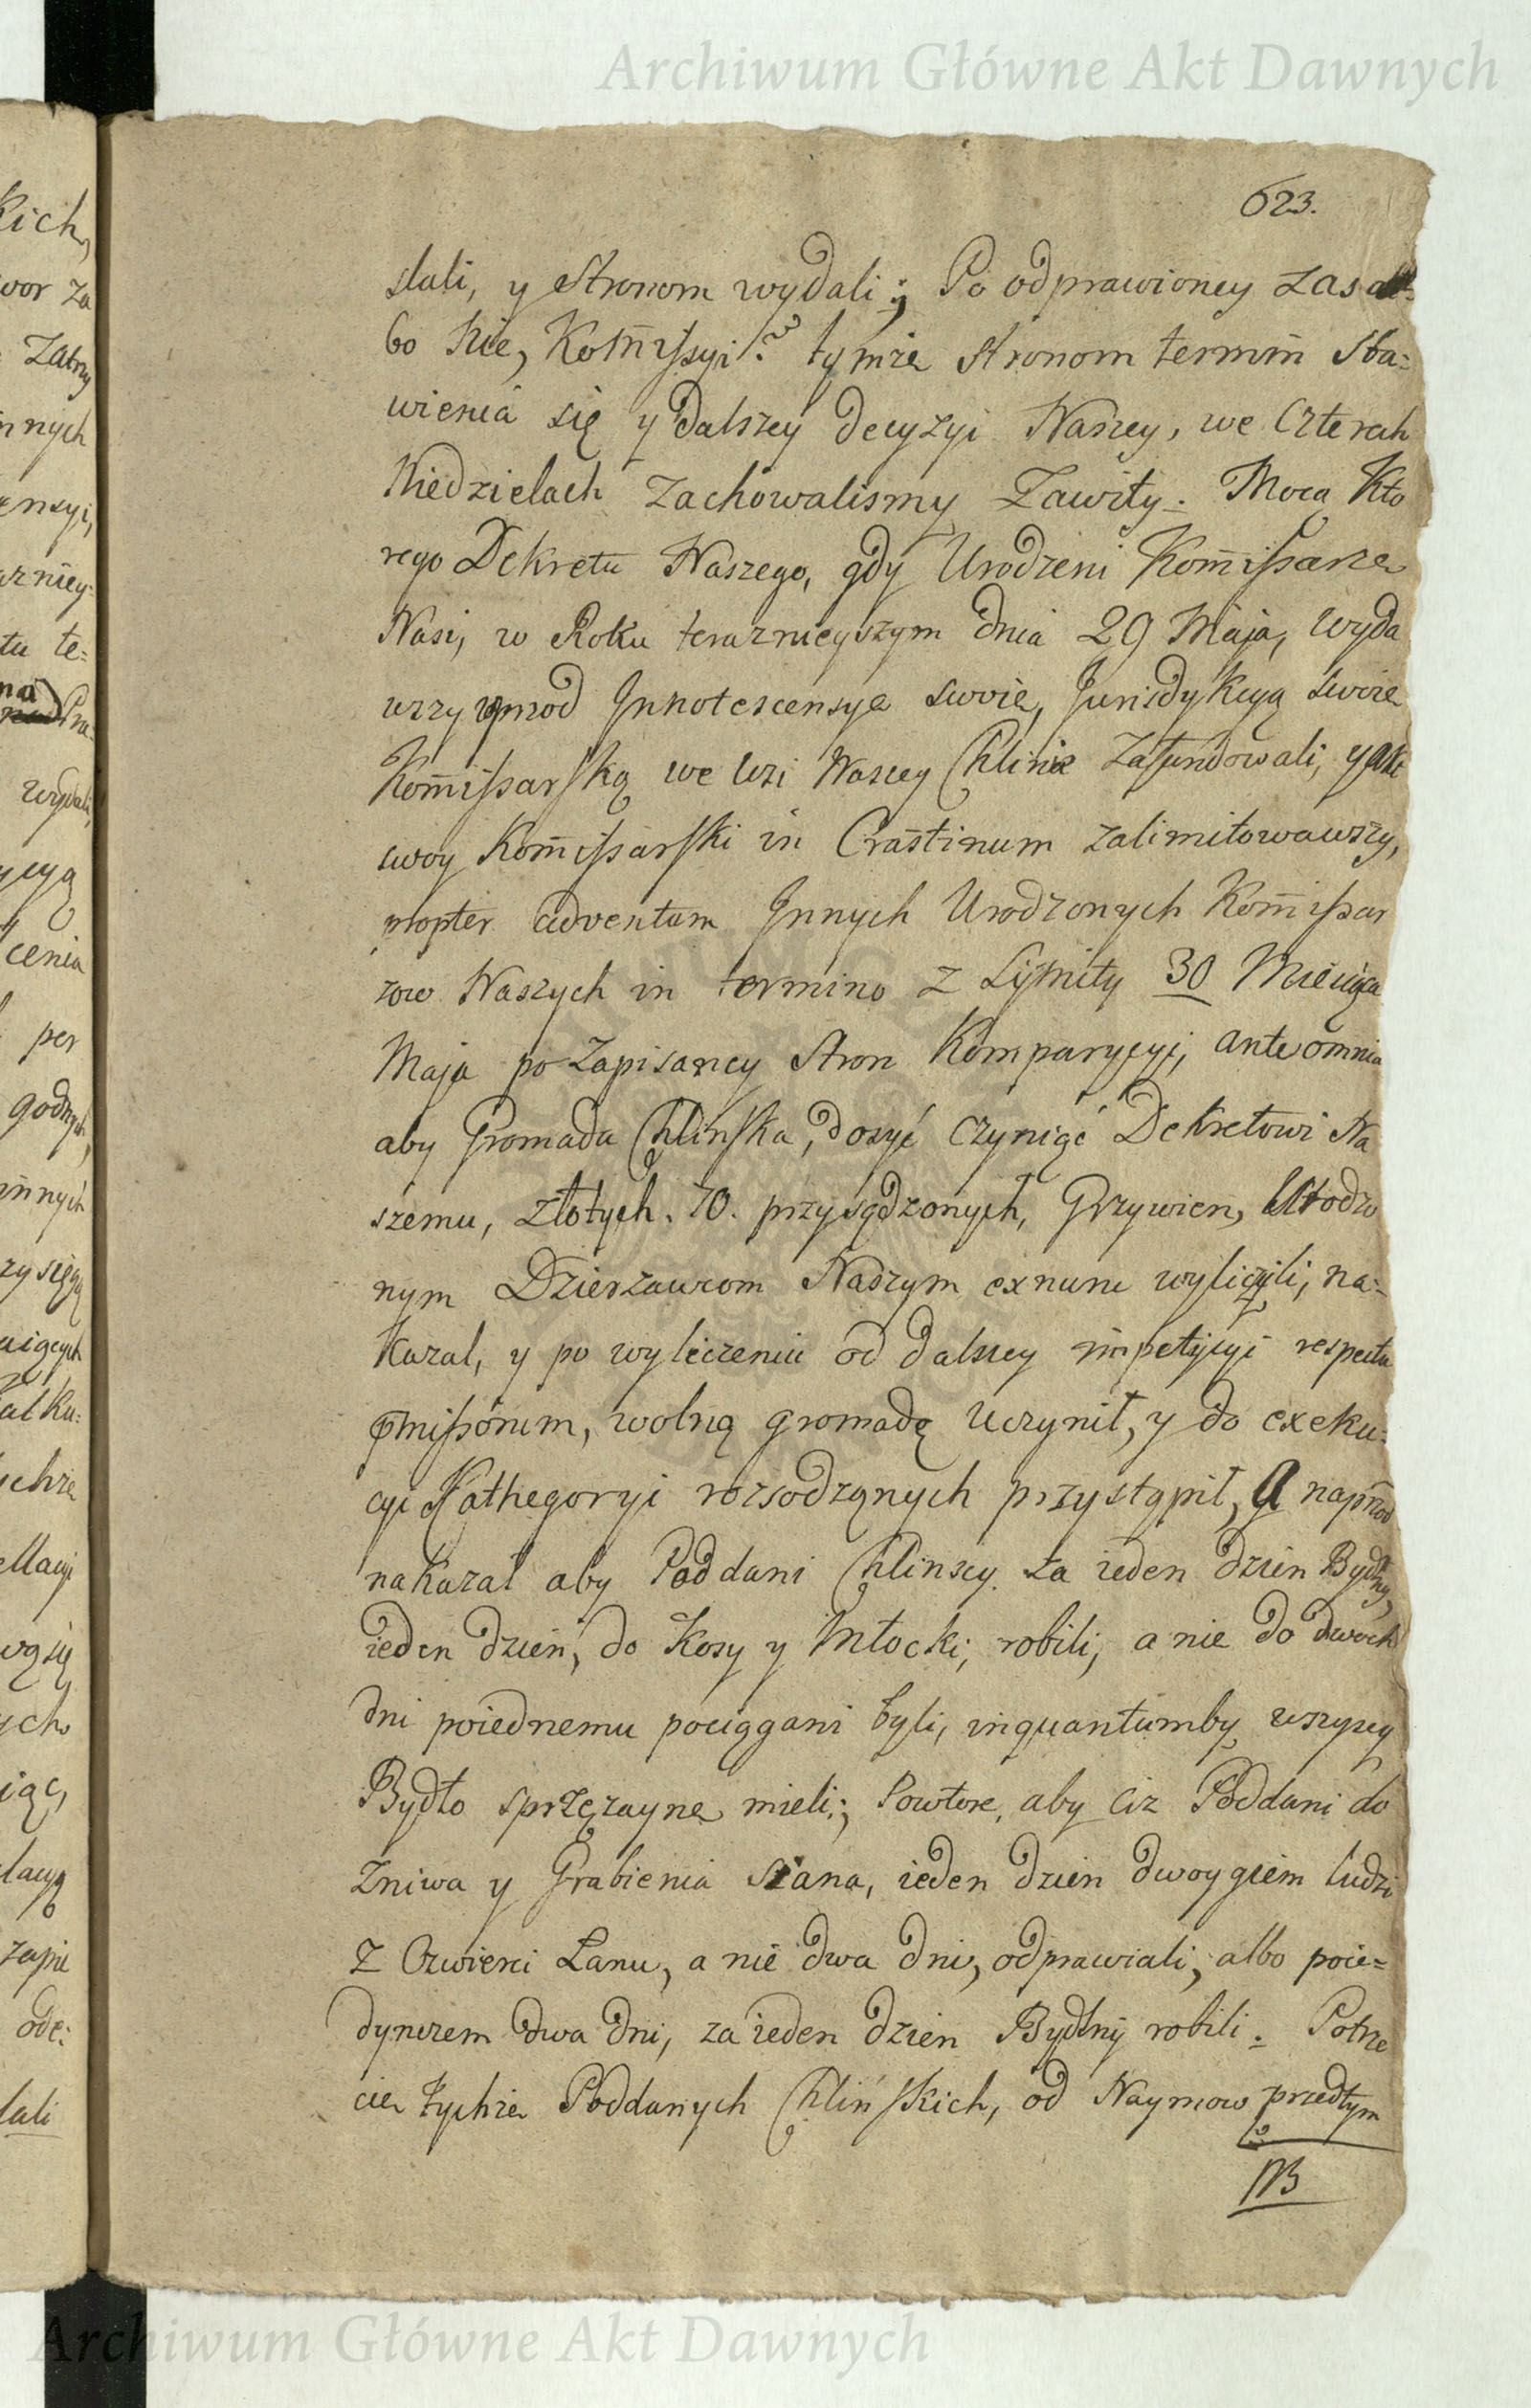 Archiwum Główne Akt Dawnych
623.
słali, y Stronom wydali; Po odprawioney zas al-
bo Nie, Kom̃issyi? tymze Stronom termin Sta=
wienia się y dalszey decyzyi Naszey, we Czterech
Niedzielach zachowalismy Zawity. Mocą Kto
rego Dekretu Naszego, gdy Urodzeni Kom̃issarze
Nasi, w Roku teraznieyszym dnia 29 Maja, wyda
wszy wprzod Innotescensye swoie, Jurisdykcyą swoie
Kom̃issarską we Wsi Naszey Chlinie zafundowali, y akt
swoy Kom̃issarski in Crastinum zalimitowawszy,
propter adventum Innych Urodzonych Kom̃issar
zow Naszych in termino z Lymity 30 Miesiąca
Maja po Zapisaney Stron Komparycyi, ante omnia
aby Gromada Chlinska, dosyć Czyniąć Dekretowi Na
szemu, złotych. 70. przysądzonych, Grzywien, Urodzo
nym Dzierzawcom Naszym exnunc wyliczyli, na=
kazał, y po wyliczeniu od dalszey impetycyi respectu
p̃missorum, wolną gromadę uczynił, y do exeku=
cyi Kathegoryi rozsodzonych przystąpił, A naprzod
nakazał aby Poddani Chlinscy za ieden dzien Bydlny,
ieden dzień, do Kosy y Młocki, robili, a nie do dwoch
dni poiednemu pociągani byli, inquantumby wszyscy
Bydło sprzęzayne mieli; Powtore, aby Ciz Poddani do
Zniwa y Grabienia siana, ieden dzien dwoygiem ludzi
Z Czwierci Łanu, a nie dwa dni, odprawiali, albo poie=
dynczem dwa dni, za ieden dzien Bydlny robili. Potrze
cie tychze Poddanych Chlińskich, od Naymow przedtym
Archiwum Główne Akt Dawnych